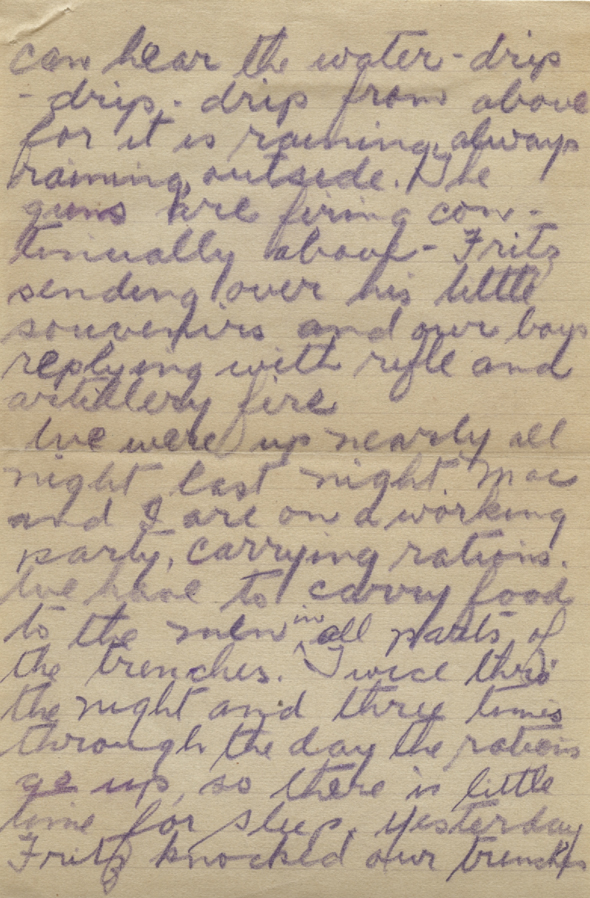 can hear the water-drip
- drip - drip from above
for it is raining, always
raining, outside. The
guns are firing con-
tinually above - Fritz
sending over his little
souvenirs and our boys
replying with rifle and
artillery fire
We were up nearly all
night last night. Mac
and I are on a working
party, carrying rations.
We have to carry food
to the men in all parts of
the trenches. Twice thro'
the night and three times
through the day the rations
go up, so there is little
time for sleep. Yesterday
Fritz knocked our trenches